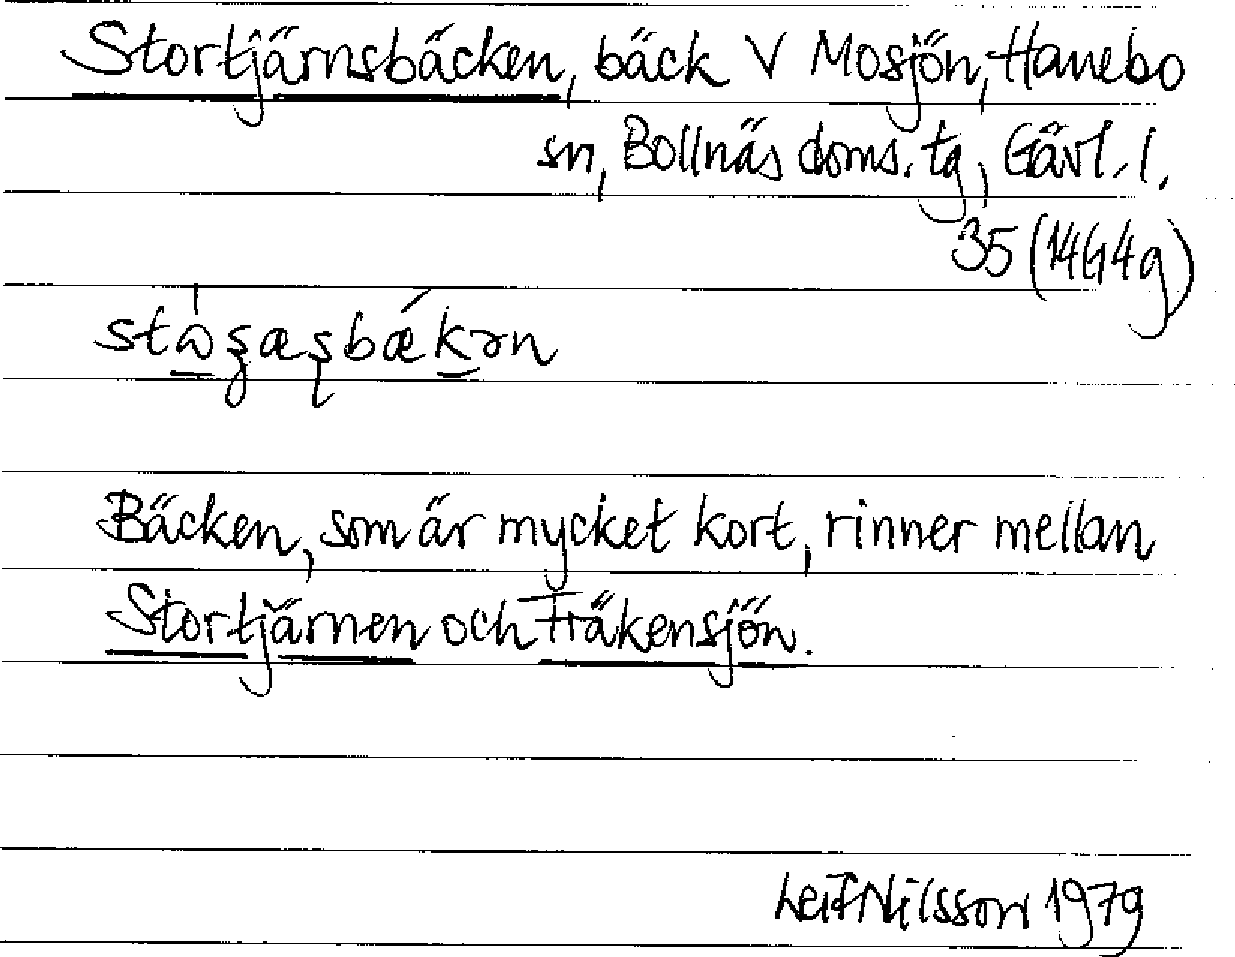 Stortjärnsbäcken, bäck V Mosjön, Hanebo
sn, Bollnäs doms. tg, Gävl. l.
35 (14G4g)
Bäcken, som är mycket kort, rinner mellan
Stortjärnen och Fräkensjön.
Leif Nilsson 1979